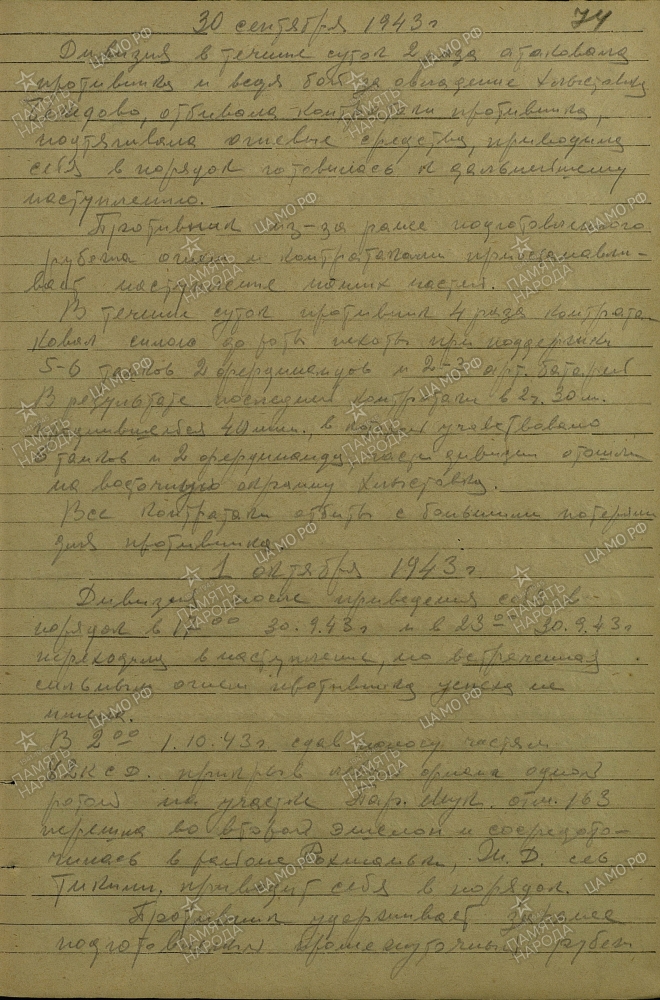 30 сентября 1943 г
74
Дивизия в течение суток 2 раза атаковала
противника и ведя бой за овладение Хлыстовка
отбивала контратаки противника,
подтягивала огневые средства, приводила
себя в порядок готовилась к дальнейшему
наступлению.
Противник из-за ранее подготовленного
рубежа огнем и контратаками приостанавли-
вает наступление наших частей.
В течении суток противник 4 раза контрата
ковал силою до роты пехоты при поддержки
5-6 танков 2 фердинандов и 2-3 арт. батарей
В результате последней контратаки в 2ч. 30 м.
длившейся 40 мин., в которой учавствовало
танков и 2 фердинанда части дивизии отошли
на восточную окраину Хлыстовка.
Все контратаки отбиты с большими потерями
для противника.
1 октября 1943 г
Дивизия после приведения себя в
порядок в 30.9.43 г и в 23 00 30.9.43 г
переходила в наступление, но встреченная
сильным огнем противника успеха не
имела.
В 2 00 1.10.43 г сдав полосу частям
СД. прикрыв одной
ротой на участке отм. 163
перешла во второй эшелон и сосредото-
чилась в районе
приводит себя в порядок.
Противник удерживает заранее
подготовленный промежуточный рубеж
ПАМЯТЬ НАРОДА
ЦАМО.РФ